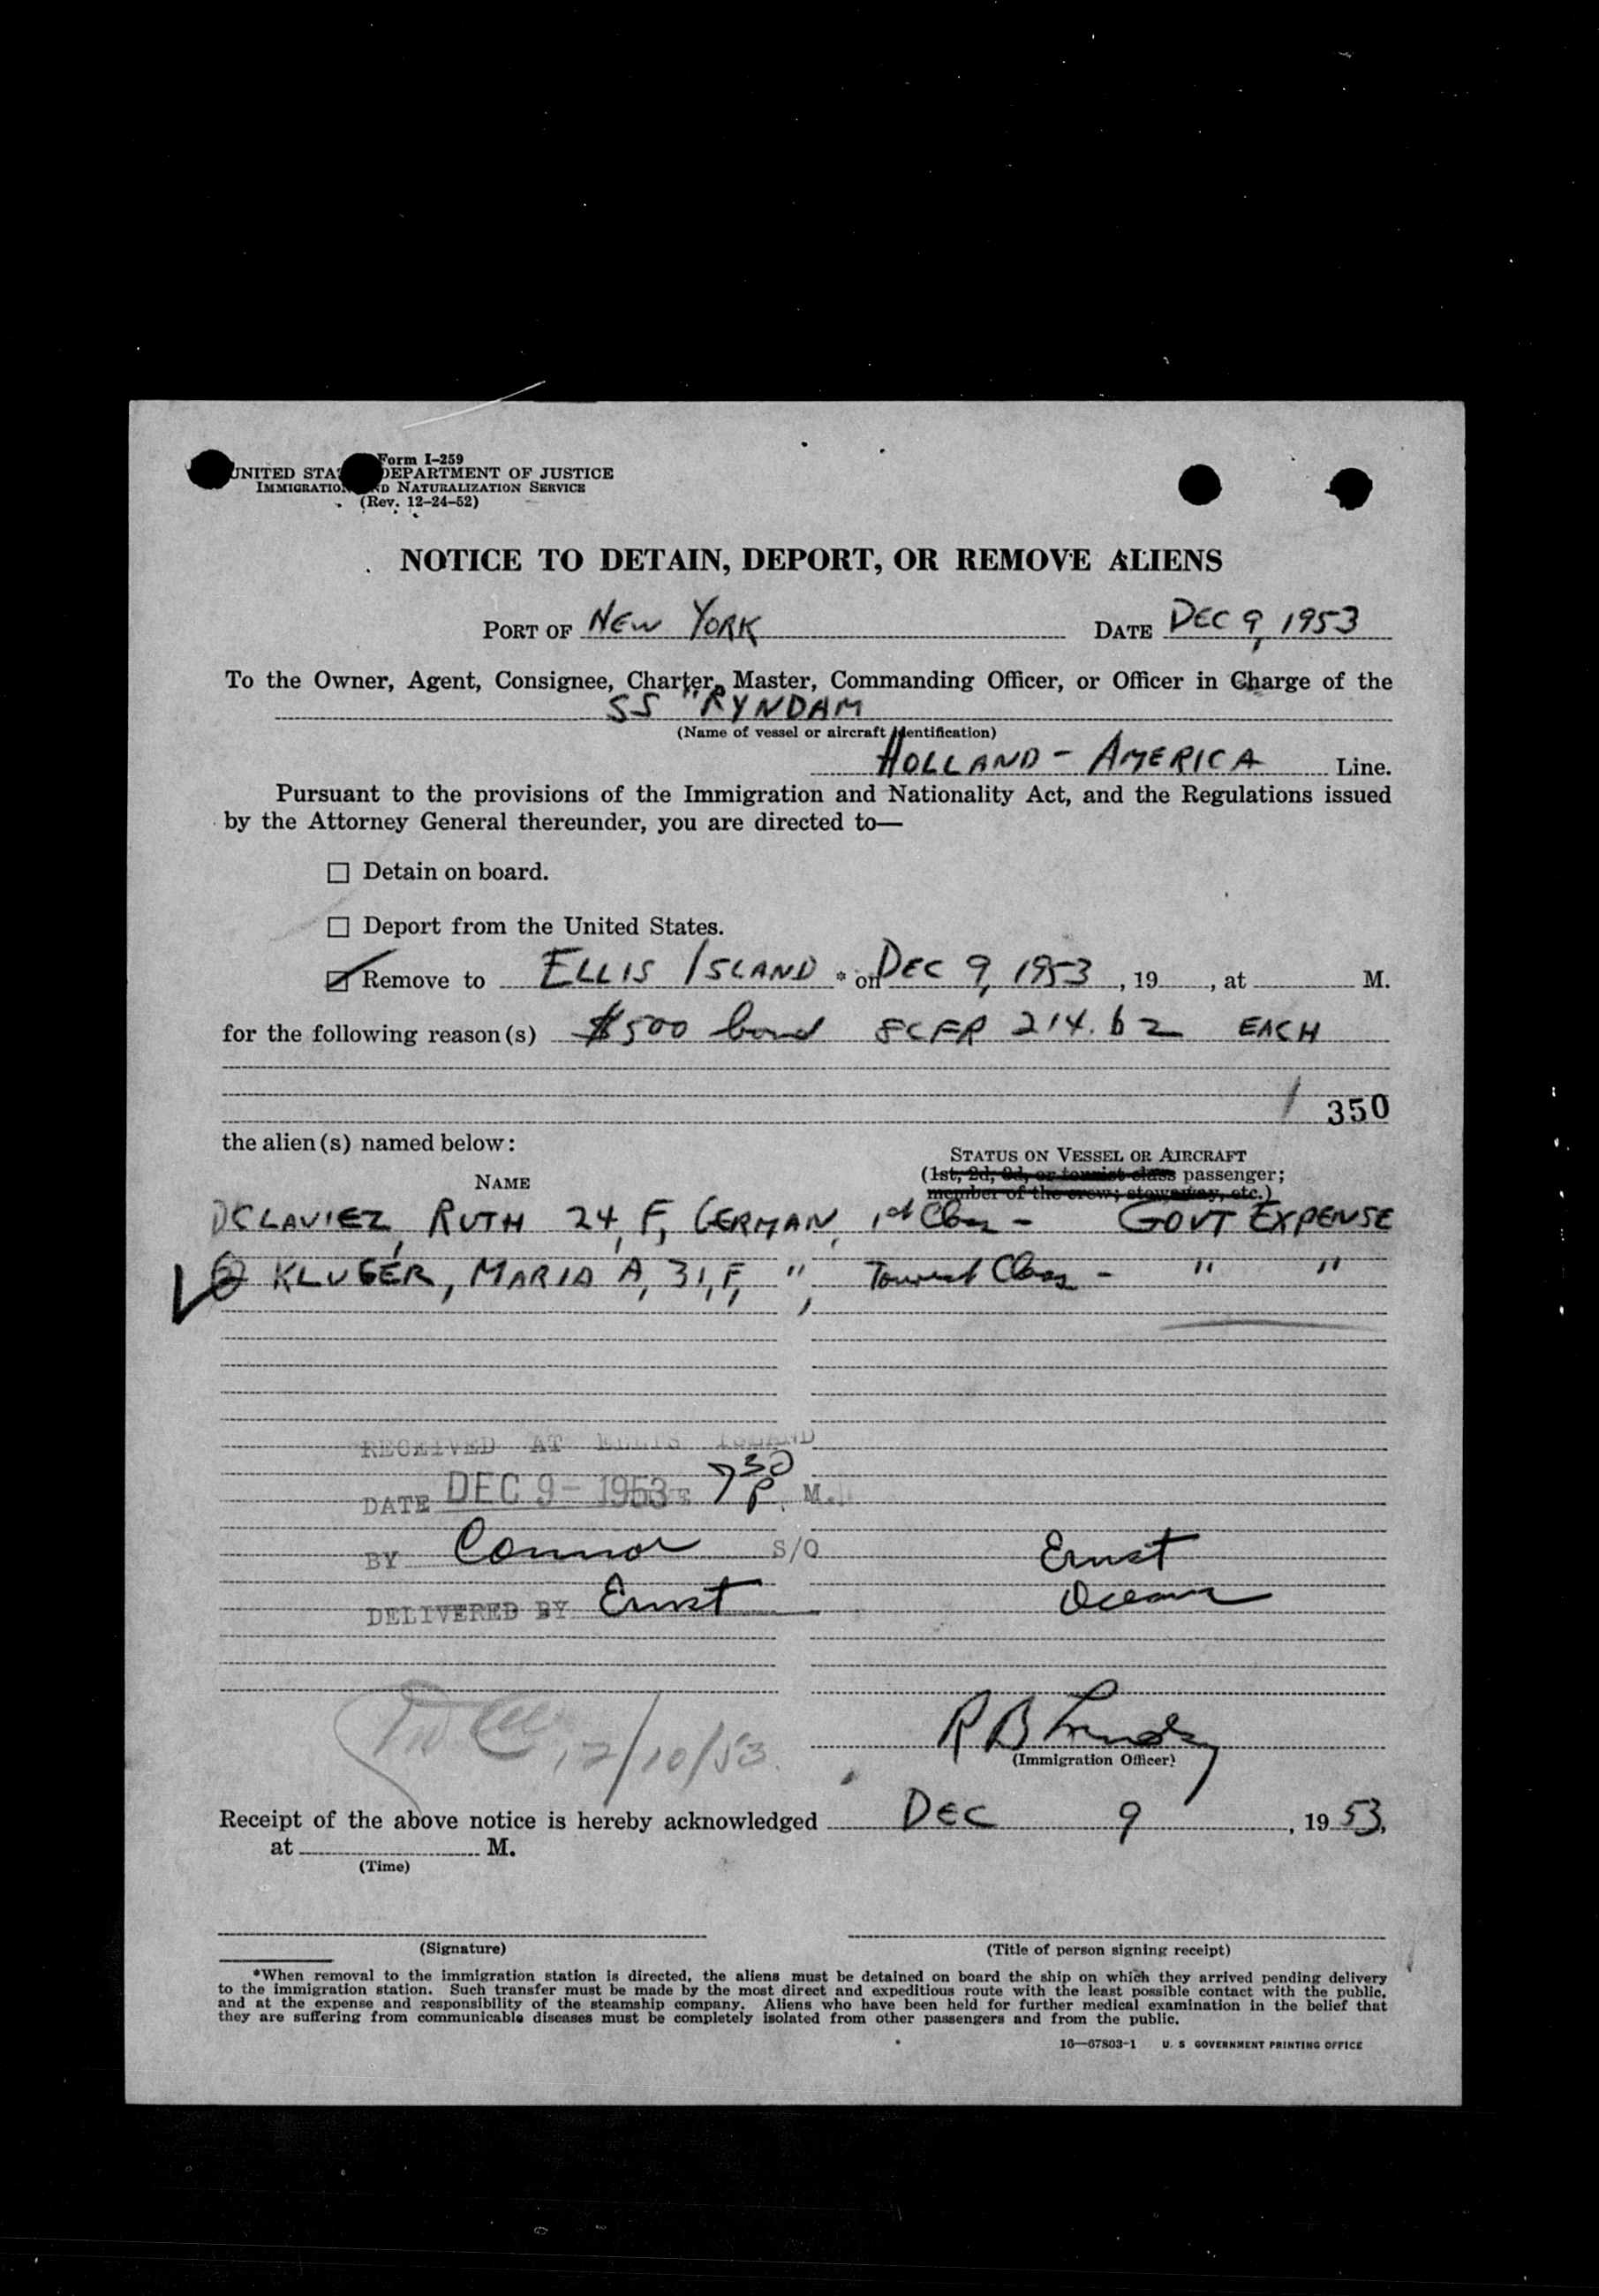 Form I-259
UNITED STA DEPARTMENT OF JUSTICE
IMMIGRATION AND NATURALIZATION SERVICE
(Rev. 12-24-52)
NOTICE TO DETAIN, DEPORT, OR REMOVE ALIENS
PORT OF NEW YORK DATE DEC 9, 1953
To the Owner, Agent, Consignee, Charter, Master, Commanding Officer, or Officer in Charge of the
SS "RYNDAM
(Name of vessel or aircraft identification)
HOLLAND - AMERICA Line.
Pursuant to the provisions of the Immigration and Nationality Act, and the Regulations issued
by the Attorney General thereunder, you are directed to—
☐ Detain on board.
☐ Deport from the United States.
☑ Remove to ELLIS ISLAND * on DEC 9, 1953, 19 , at M.
for the following reason(s) $500 bond 8CFR 214.b2 EACH
1 350
the alien(s) named below:
STATUS ON VESSEL OR AIRCRAFT
(1st, 2d, 3d, or tourist class passenger;
NAME
member of the crew; stowaway, etc.)
RUTH 24, F, GERMAN, 1st Class - GOVT EXPENSE
② KLUGER, MARIA A, 31, F, ", Tourist Class - " "
RECEIVED AT ELLIS ISLAND
DATE DEC 9 - 1953 7 30 P. M.
BY Connor S/O
Ernst
DELIVERED BY Ernst
Ocean
12/10/53
R B
(Immigration Officer)
Receipt of the above notice is hereby acknowledged DEC 9, 1953,
at M.
(Time)
(Signature)
(Title of person signing receipt)
*When removal to the immigration station is directed, the aliens must be detained on board the ship on which they arrived pending delivery
to the immigration station. Such transfer must be made by the most direct and expeditious route with the least possible contact with the public,
and at the expense and responsibility of the steamship company. Aliens who have been held for further medical examination in the belief that
they are suffering from communicable diseases must be completely isolated from other passengers and from the public.
16—67803-1 U. S GOVERNMENT PRINTING OFFICE